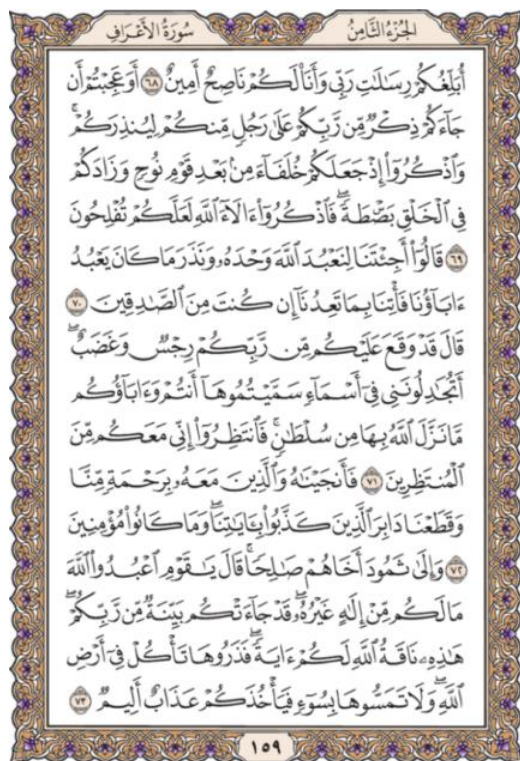 الجُزْءُ الثَّامِنُ سُورَةُ الأَعْرَافِ
أُبَلِّغُكُمْ رِسَٰلَٰتِ رَبِّي وَأَنَا۠ لَكُمْ نَاصِحٌ أَمِينٌ ٦٨ أَوَعَجِبْتُمْ أَن
جَآءَكُمْ ذِكْرٌ مِّن رَّبِّكُمْ عَلَىٰ رَجُلٍ مِّنكُمْ لِيُنذِرَكُمْ ۚ
وَٱذْكُرُوٓا۟ إِذْ جَعَلَكُمْ خُلَفَآءَ مِنۢ بَعْدِ قَوْمِ نُوحٍ وَزَادَكُمْ
فِي ٱلْخَلْقِ بَصْۜطَةً ۖ فَٱذْكُرُوٓا۟ ءَالَآءَ ٱللَّهِ لَعَلَّكُمْ تُفْلِحُونَ
٦٩ قَالُوٓا۟ أَجِئْتَنَا لِنَعْبُدَ ٱللَّهَ وَحْدَهُۥ وَنَذَرَ مَا كَانَ يَعْبُدُ
ءَابَآؤُنَا فَأْتِنَا بِمَا تَعِدُنَآ إِن كُنتَ مِنَ ٱلصَّٰدِقِينَ ٧٠
قَالَ قَدْ وَقَعَ عَلَيْكُم مِّن رَّبِّكُمْ رِجْسٌ وَغَضَبٌ ۖ
أَتُجَٰدِلُونَنِي فِيٓ أَسْمَآءٍ سَمَّيْتُمُوهَآ أَنتُمْ وَءَابَآؤُكُم
مَّا نَزَّلَ ٱللَّهُ بِهَا مِن سُلْطَٰنٍ ۚ فَٱنتَظِرُوٓا۟ إِنِّي مَعَكُم مِّنَ
ٱلْمُنتَظِرِينَ ٧١ فَأَنجَيْنَٰهُ وَٱلَّذِينَ مَعَهُۥ بِرَحْمَةٍ مِّنَّا
وَقَطَعْنَا دَابِرَ ٱلَّذِينَ كَذَّبُوا۟ بِـَٔايَٰتِنَا ۖ وَمَا كَانُوا۟ مُؤْمِنِينَ
٧٢ وَإِلَىٰ ثَمُودَ أَخَاهُمْ صَٰلِحًا ۗ قَالَ يَٰقَوْمِ ٱعْبُدُوا۟ ٱللَّهَ
مَا لَكُم مِّنْ إِلَٰهٍ غَيْرُهُۥ ۖ قَدْ جَآءَتْكُم بَيِّنَةٌ مِّن رَّبِّكُمْ ۖ
هَٰذِهِۦ نَاقَةُ ٱللَّهِ لَكُمْ ءَايَةً ۖ فَذَرُوهَا تَأْكُلْ فِيٓ أَرْضِ
ٱللَّهِ ۖ وَلَا تَمَسُّوهَا بِسُوٓءٍ فَيَأْخُذَكُمْ عَذَابٌ أَلِيمٌ ٧٣
١٥٩